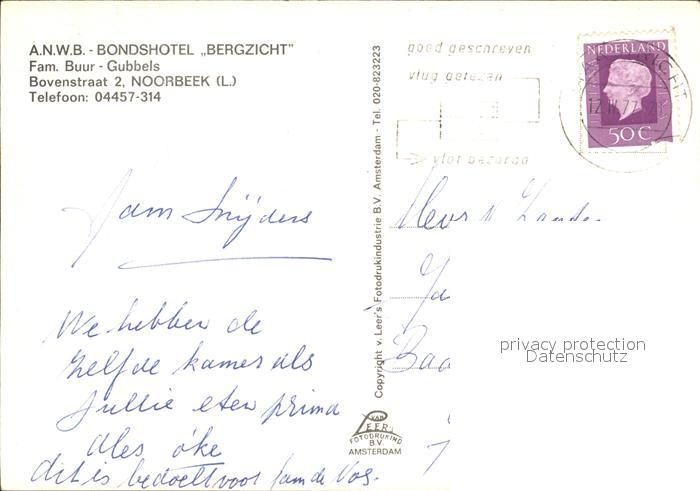 A.N.W.B. - BONDSHOTEL „BERGZICHT"
Fam. Buur - Gubbels
Bovenstraat 2, NOORBEEK (L.)
Telefoon: 04457-314
fam Snijders
We hebben de
zelfde kamer als
Jullie eten prima
alles oke
dit is bedoelt voor fam de Vos.
Copyright v. Leer's Fotodrukindustrie B.V. Amsterdam - Tel. 020-823223
VAN
LEER'S
FOTODRUKIND
B.V.
AMSTERDAM
goed geschreven
vlug gelezen
vlot bezorgd
NEDERLAND
50 C
Mevr
privacy protection
Datenschutz